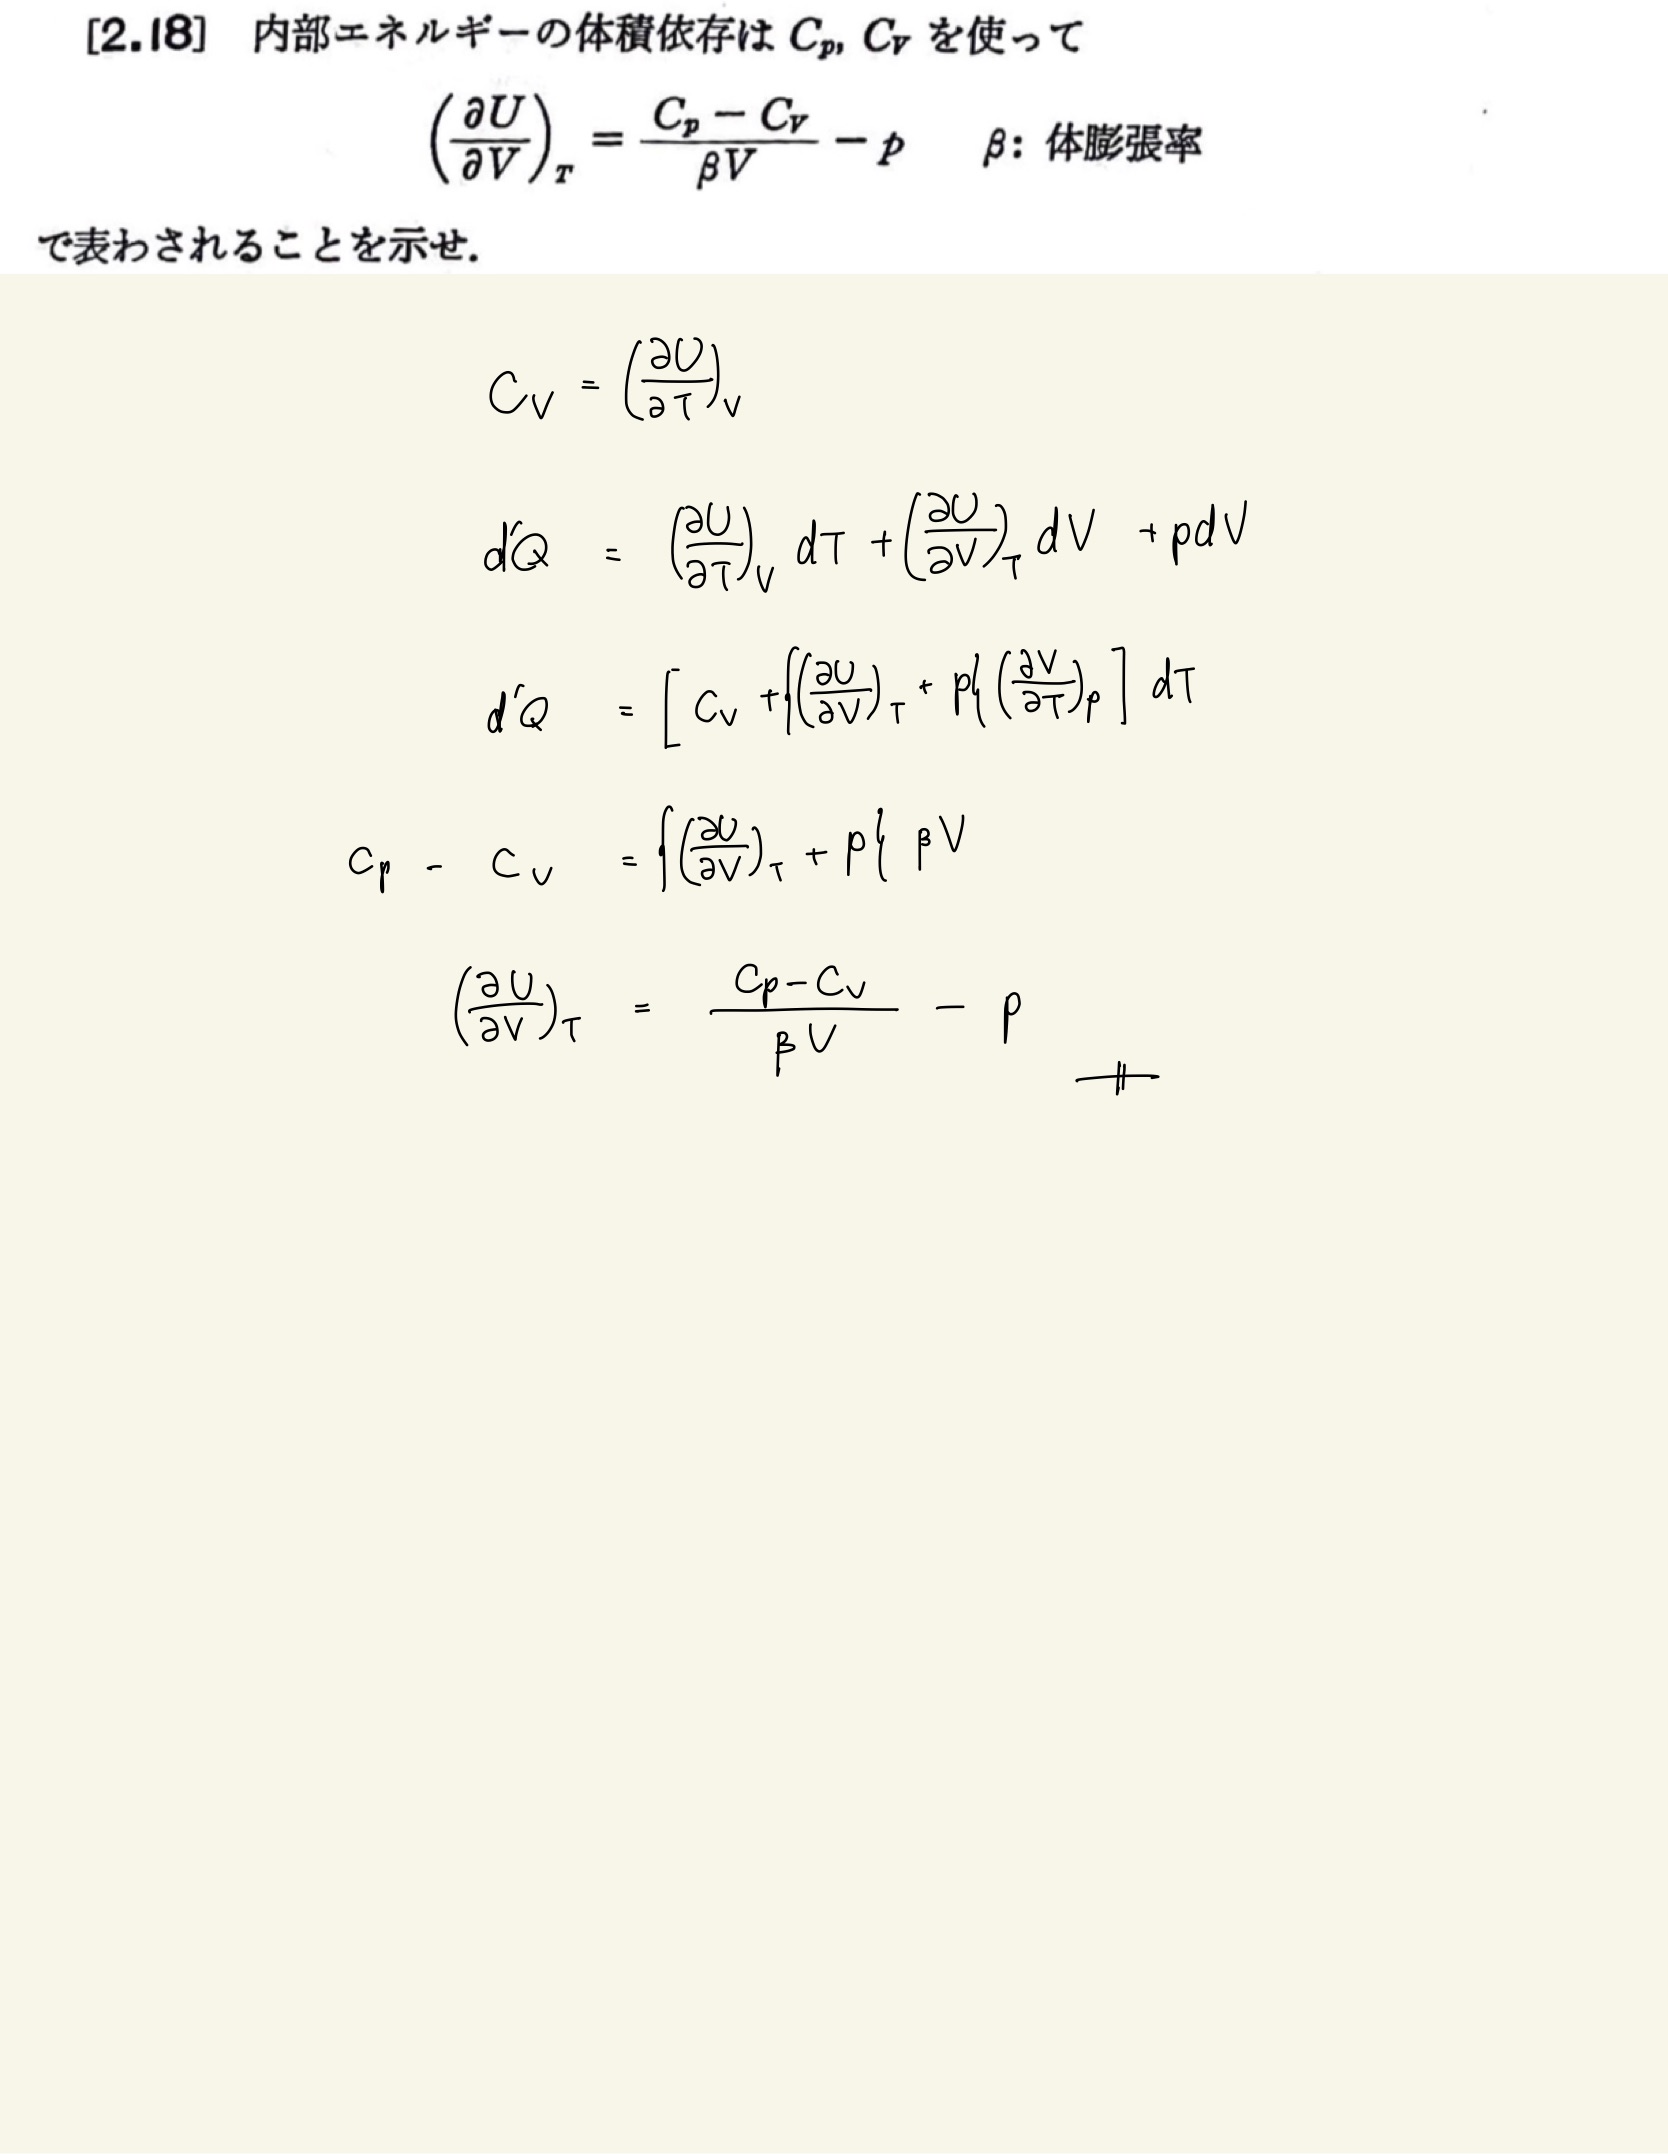 [2.18] 内部エネルギーの体積依存は Cp, CV を使って
(∂U/∂V)T = (Cp − CV)/(βV) − p β: 体膨張率
で表わされることを示せ.
CV = (∂U/∂T)V
d'Q = (∂U/∂T)V dT + (∂U/∂V)T dV + pdV
d'Q = [CV + {(∂U/∂V)T + p} (∂V/∂T)p] dT
Cp - CV = {(∂U/∂V)T + p} βV
(∂U/∂V)T = (Cp - CV)/(βV) - p